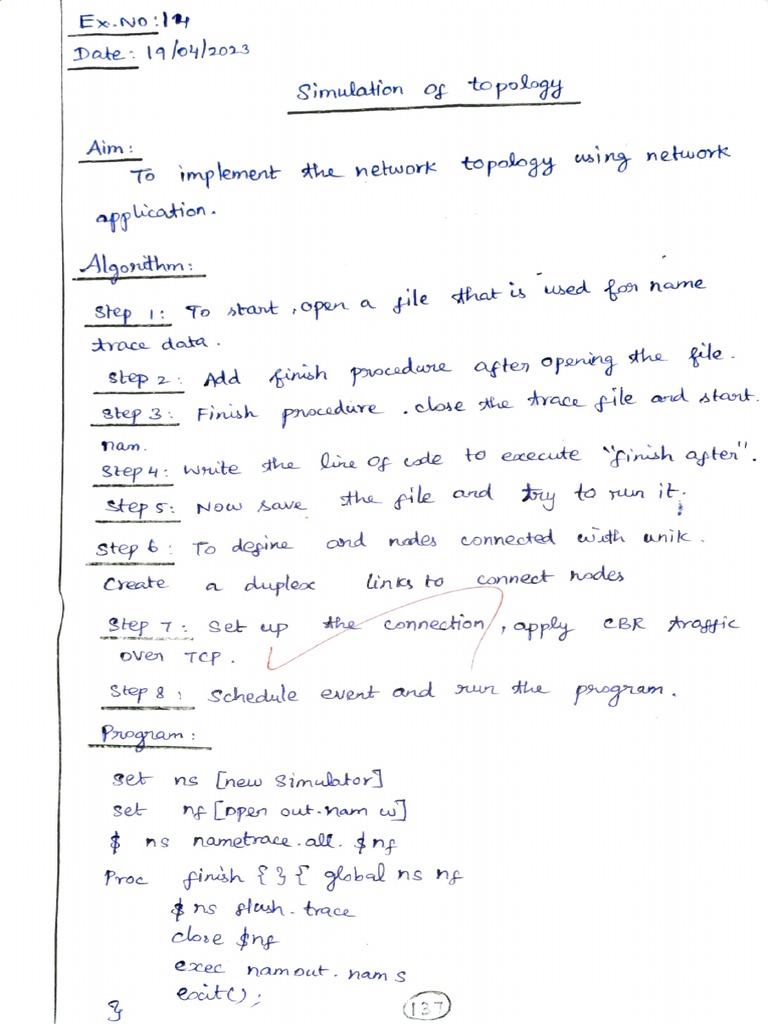 Ex.No:14
Date: 19/04/2023
Simulation of topology
Aim:
To implement the network topology using network
application.
Algorithm:
Step 1: To start, open a file that is used for name
trace data.
Step 2: Add finish procedure after opening the file.
Step 3: Finish procedure. close the trace file and start.
nam.
Step 4: Write the line of code to execute "finish after".
Step 5: Now save the file and try to run it.
Step 6: To define and nodes connected with unik.
Create a duplex links to connect nodes
Step 7: Set up the connection, apply CBR traffic
over TCP.
Step 8: Schedule event and run the program.
Program:
set ns [new simulator]
set nf [open out.nam w]
$ ns nametrace.all. $nf
Proc finish { } { global ns nf
$ ns flush.trace
close $nf
exec namout.nam s
exit();
}
137